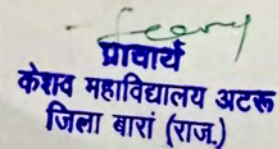 प्राचार्य
केशव महाविद्यालय अटरू
जिला बारां (राज.)